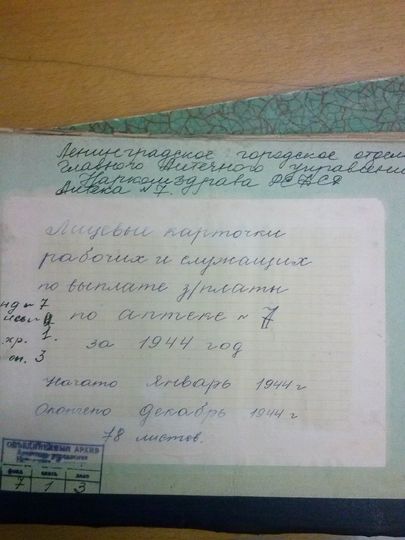 Ленинградское городское отдел
Главного Аптечного управлени
Наркомздрава РСФСР
Аптека № 7.
Лицевые карточки
рабочих и служащих
по выплате з/платы
по аптеке № 7
за 1944 год
нд № 7
хр. 1.
оп. 3
Начато январь 1944 г
Окончено декабрь 1944 г
78 листов.
ОБЪЕДИНЕННЫЙ АРХИВ
фонд опись дело
7 1 3